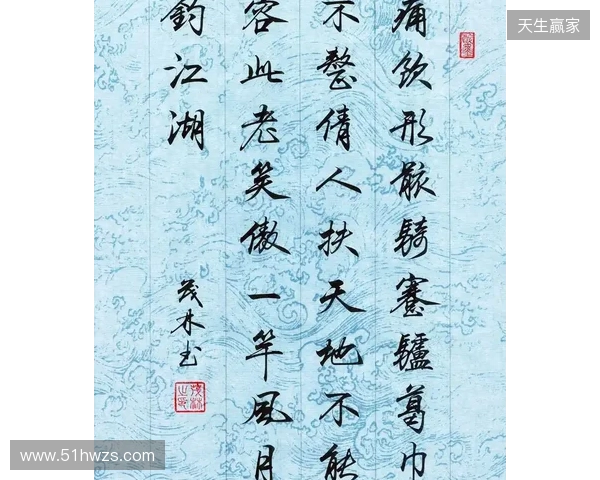 天生赢家
痛飲形骸騎蹇驢葛巾
不整倩人扶天地不能
容此老笑傲一竿風月
釣江湖
茂林书
www.51hwzs.com